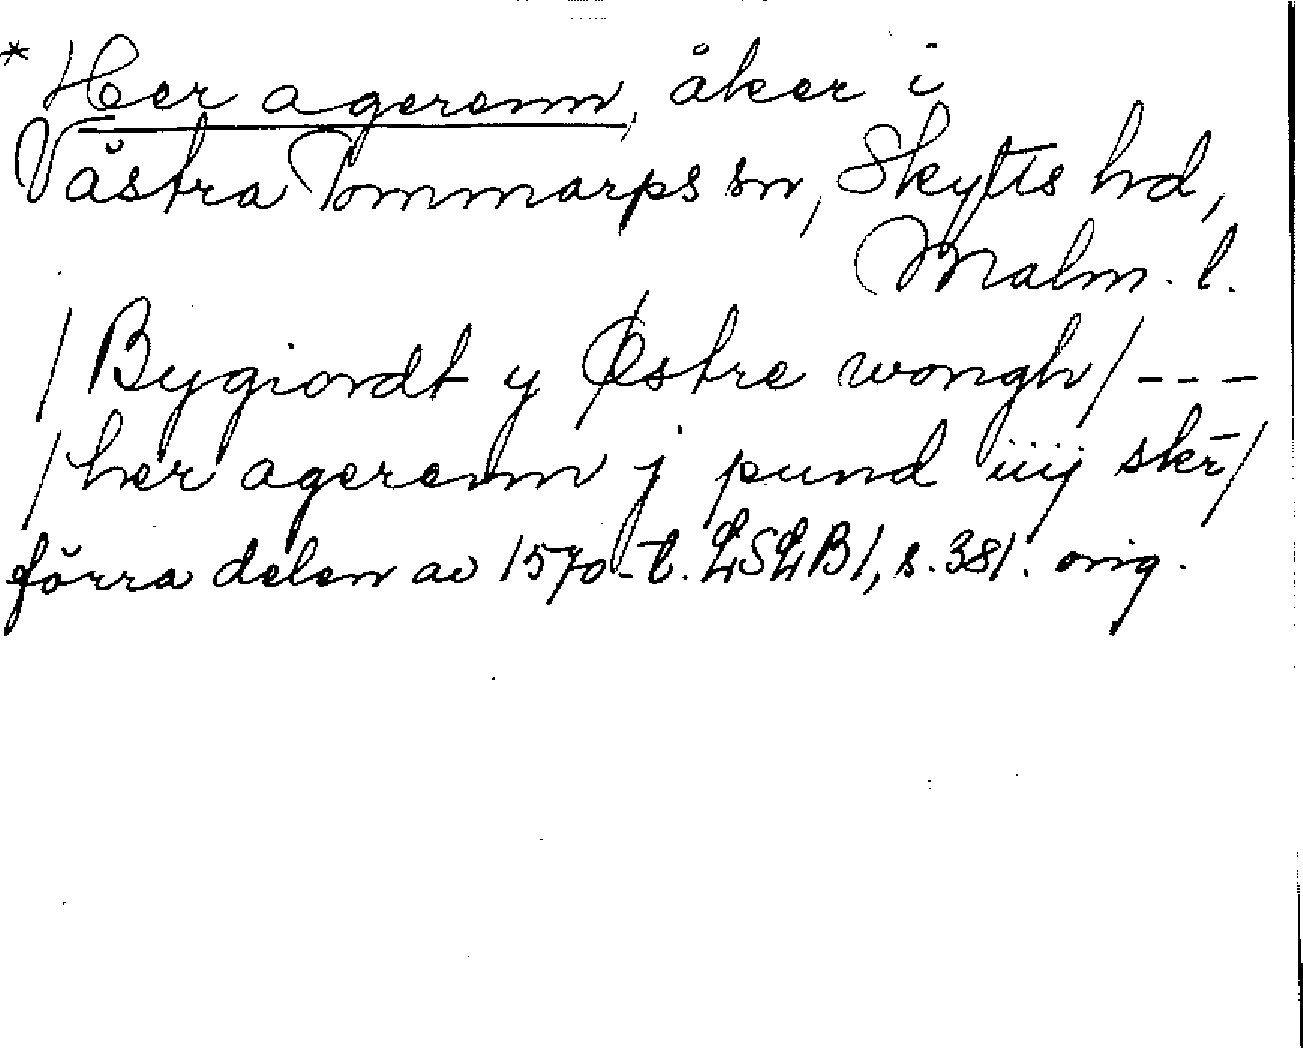 * Her agerenn, åker i
Västra Tommarps sn, Skytts hd,
Malm. l.
/Bygiordt y Østre wongh/ ---
/her agerenn j pund iiij skr̄/
förra delen av 1570-t. LSLB1, s. 381. orig.